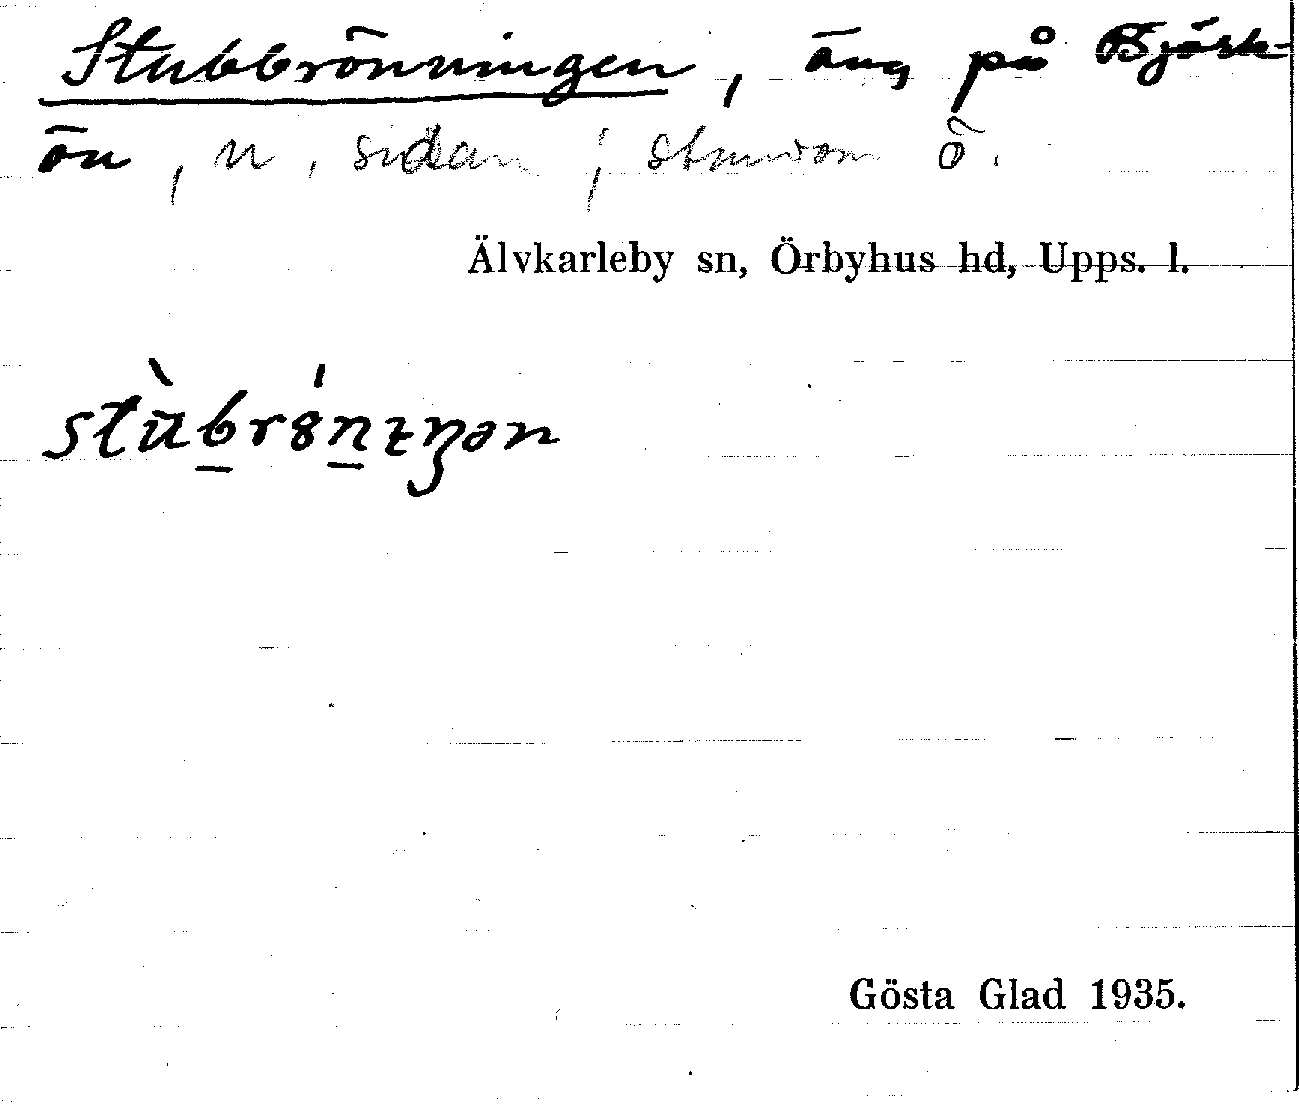 Stubbrönningen, äng på Björk-
ön, n. sidan; stundom ö.
Älvkarleby sn, Örbyhus hd, Upps. l.
stùbrö́nıŋən
Gösta Glad 1935.